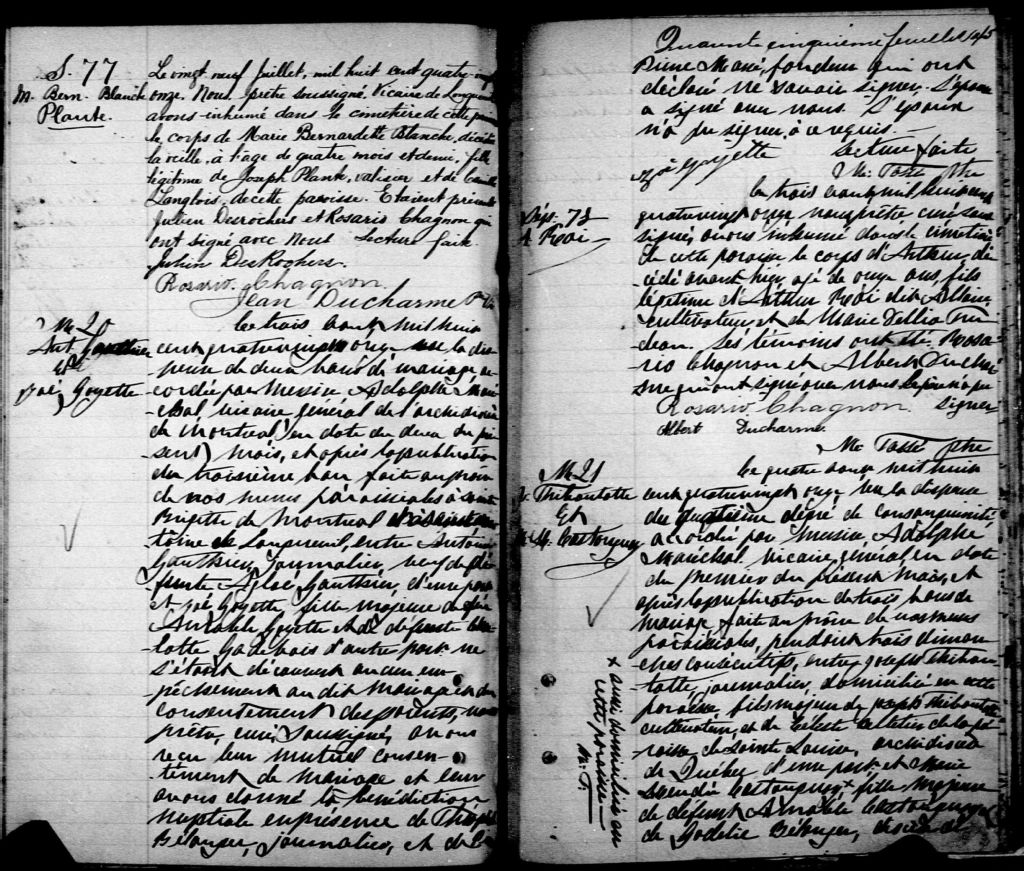 S. 77
M. Bern. Blanche
Plante.
Le vingt neuf juillet, mil huit cent quatre-vingt
onze. Nous prêtre soussigné Vicaire de Longueuil
avons inhumé dans le cimetière de cette paroisse
le corps de Marie Bernardette Blanche, décédée
la veille, à l'âge de quatre mois et demi, fille
légitime de Joseph Plante, valisier et de
Langlois, de cette paroisse. Etaient présents
Julien Desrochers et Rosario Chagnon qui
ont signé avec Nous Lecture faite
Julien DesRochers.
Rosario. Chagnon.
Jean Ducharme Ptre
M 20
Ant. Gauthier
Et
Zoé Goyette
Le trois août mil huit
cent quatrevingt onze vu la dis-
pense de deux bans de mariage ac-
cordée par Messire Adolphe Maré-
chal vicaire général de l'archidiocèse
de Montréal en date du deux du pré-
sent mois, et après la publication
du troisième ban faite au prône
de nos messes paroissiales à Sainte
Brigitte de Montréal
toine de Longueuil, entre Antoine
Gauthier, journalier, veuf de dé-
funte Agloé Gauthier, d'une part
et Zoé Goyette, fille majeure de feu
Amable Goyette et de défunte
lotte Gadbois d'autre part ne
s'étant découvert aucun em-
pêchement au dit mariage et du
consentement des parents, nous
prêtre, curé, soussigné, avons
reçu leur mutuel consen-
tement de mariage et leur
avons donné la bénédiction
nuptiale en présence de
Bélanger, journalier, et de
Quarente cinquième feuillet 45
Massé, fondeur qui ont
déclaré ne savoir signer. L'épouse
a signé avec nous. L'époux
n'a pu signer, a requis.
Zoé Goyette Lecture faite
M. Tassé ptre
Sép. 78
A. Roi
Le trois août mil huit cent
quatrevingt onze nous prêtre curé sous-
signé, avons inhumé dans le cimetière
de cette paroisse le corps d'Arthur, dé-
cédé avant hier, agé de onze ans, fils
légitime d'Arthur Roi dit
cultivateur, et de Marie Dellia Tru-
deau. Les témoins ont été Rosa-
rio Chagnon et Albert Duchar-
me qui ont signé avec nous le père n'a pu
Rosario. Chagnon. signer
Albert Ducharme.
M. Tassé ptre
M 21
J. Thiboutotte
Et
M. Castonguay
Le quatre août mil huit
cent quatrevingt onze Vu la dispense
du quatrième dégré de consanguinité,
accordée par Messire Adolphe
Maréchal vicaire général en date
du premier du présent mois, et
après la publication de trois bans de
mariage faite au prône de nos messes
paroissiales, pendant trois diman-
ches consécutifs, entre Joseph Thibou-
totte, journalier, domicilié en cette
paroisse, fils majeur de Joseph Thiboutotte
cultivateur, et de Celeste Pelletier de la pa-
roisse de Sainte Louise, archidiocèse
de Québec d'une part, et Marie
Castonguay + fille majeure
de défunt Amable Castonguay
de Godelie Bélanger,
+ aussi domiciliée en
cette paroisse
M. T.